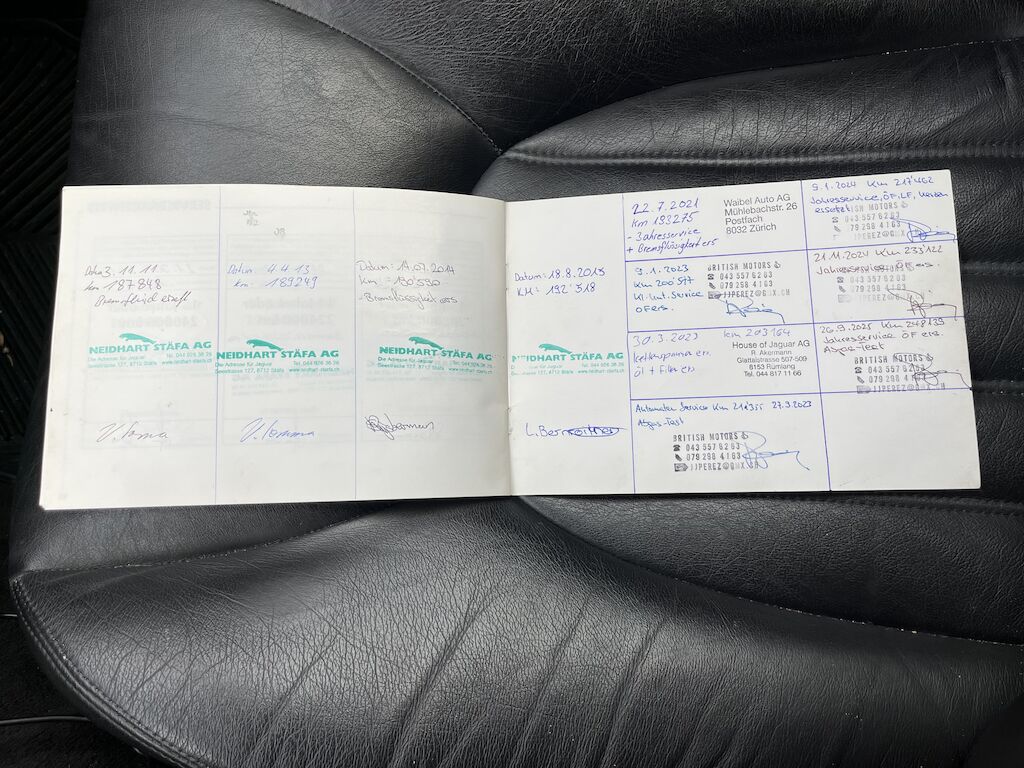 Datum 3.11.11
km 187'848
NEIDHART STÄFA AG
Die Adresse für Jaguar Tel. 044 926 36 26
Seestrasse 127, 8712 Stäfa www.neidhart-staefa.ch
Datum: 4.4.13
km: 189'249
NEIDHART STÄFA AG
Die Adresse für Jaguar Tel. 044 926 36 26
Seestrasse 127, 8712 Stäfa www.neidhart-staefa.ch
Datum: 14.07.2014
Km: 190'590
- Bremsflüssigkeit ers
NEIDHART STÄFA AG
Die Adresse für Jaguar
Seestrasse 127, 8712 Stäfa www.neidhart-staefa.ch
Datum: 18.8.2015
KM = 192'518
NEIDHART STÄFA AG
Die Adresse für Jaguar Tel. 044 926 36 26
Seestrasse 127, 8712 Stäfa www.neidhart-staefa.ch
22.7.2021
Km 193275
- Jahresservice
+ Bremsflüssigkeit ers
Waibel Auto AG
Mühlebachstr. 26
Postfach
8032 Zürich
9.1.2023
Km 200'517
Kl. Unt. Service
ÖF ers.
BRITISH MOTORS
043 557 62 63
079 298 41 63
JJPEREZ@GMX.CH
30.3.2023 km 203164
Kettenspanner.
Öl + Filter
House of Jaguar AG
R. Akermann
Glattalstrasse 507-509
8153 Rümlang
Tel. 044 817 11 66
Automaten Service Km 27.9.2023
Abgas-Test
BRITISH MOTORS
043 557 62 63
079 298 41 63
JJPEREZ@GMX.CH
9.1.2024 Km 217'462
Jahresservice, ÖF, LF, Kerzen
ersetzt
BRITISH MOTORS
043 557 62 63
079 298 41 63
JJPEREZ@GMX
21.11.2024 Km 233'122
Jahresservice ÖF ers.
BRITISH MOTORS
043 557 62 63
079 298 41 63
26.9.2025 Km 248139
Jahresservice ÖF ers
Abgas-Test
BRITISH MOTORS
043 557 62 63
079 298 41 63